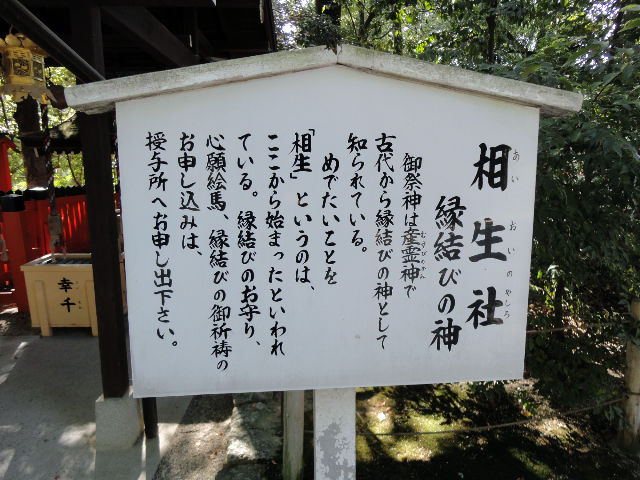 相生社
あいおいのやしろ
縁結びの神
御祭神は産霊神で
むすびのかみ
古代から縁結びの神として
知られている。
めでたいことを
「相生」というのは、
ここから始まったといわれ
ている。縁結びのお守り、
心願絵馬、縁結びの御祈祷の
お申し込みは、
授与所へお申し出下さい。
幸千